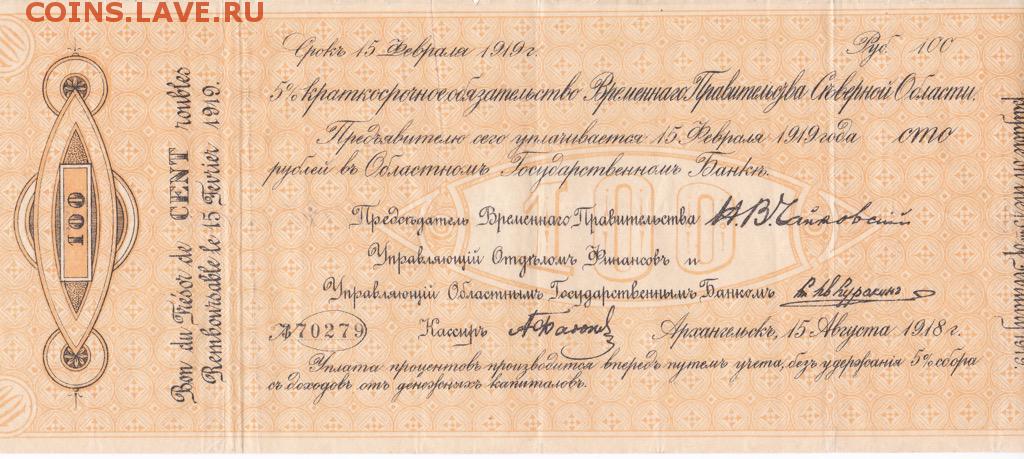 COINS.LAVE.RU
Срокъ 15 Февраля 1919 г. Руб. 100
5% краткосрочное обязательство Временнаго Правительства Сѣверной Области.
Предъявителю сего уплачивается 15 Февраля 1919 года сто
рублей въ Областномъ Государственномъ Банкѣ.
Предсѣдатель Временнаго Правительства Н.В. Чайковскій
Управляющій Отдѣломъ Финансовъ и
Управляющій Областнымъ Государственнымъ Банкомъ
№ 70279 Кассиръ Архангельскъ, 15 Августа 1918 г.
Уплата процентовъ производится впередъ путемъ учета, безъ удержанія 5% сбора
съ доходовъ отъ денежныхъ капиталовъ.
100
Bon du Trésor de CENT roubles
Remboursable le 15 Février 1919.
100